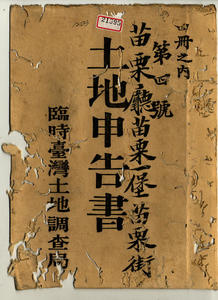 四冊之內
第四號
苗栗廳苗栗堡苗栗街
土地申告書
臨時臺灣土地調查局